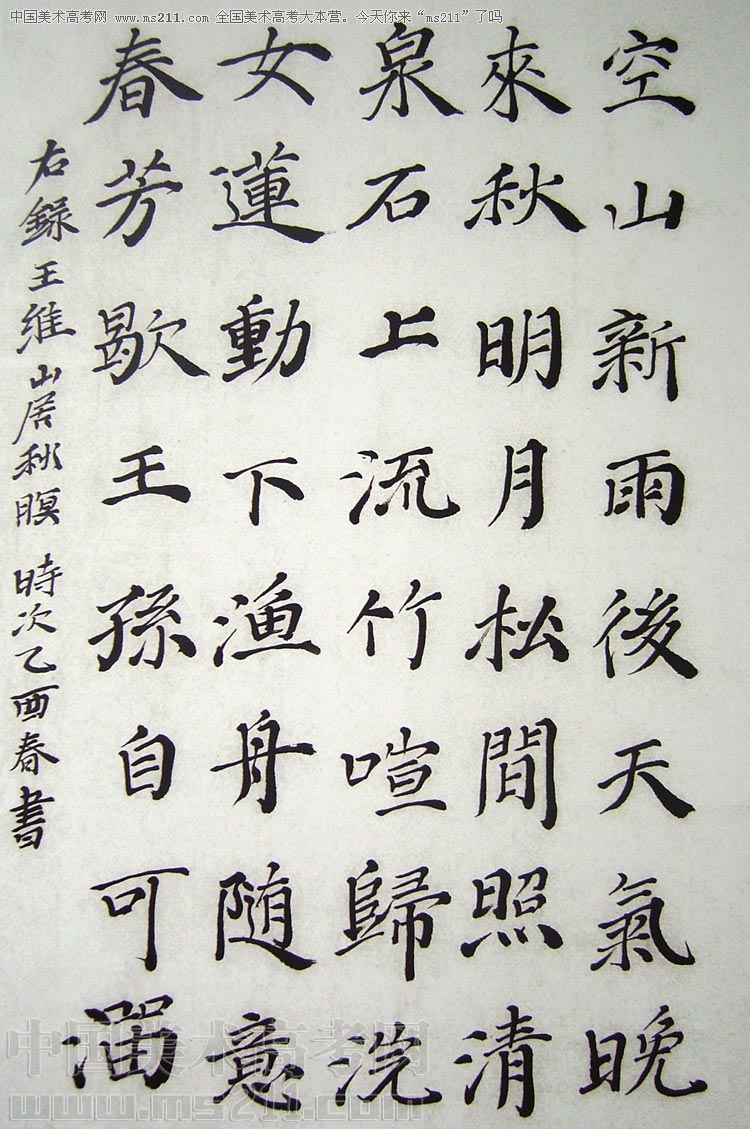 中国美术高考网 www.ms211.com 全国美术高考大本营。今天你来“ms211”了吗
空山新雨後天氣晚
來秋明月松間照清
泉石上流竹喧歸浣
女蓮動下漁舟随意
春芳歇王孫自可溜
右錄王維山居秋暝 時次乙酉春書
中国美术高考网
www.ms211.com